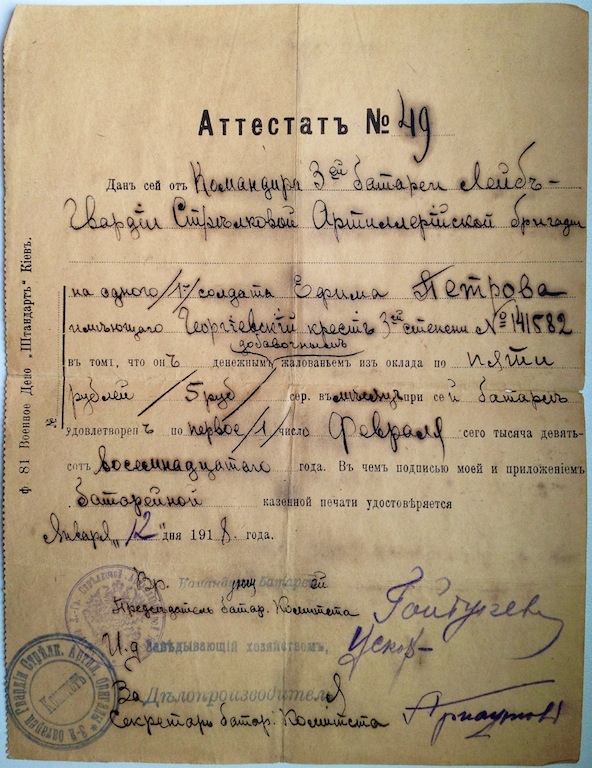 Аттестатъ № 49
Данъ сей отъ Командира 3ей батареи Лейбъ-
Гвардіи Стрѣлковой Артиллерійской бригады
на одного /1/ солдата Ефима Петрова
имѣющаго Георгіевскій крестъ 3ей степени № 141582
добавочнымъ
въ томъ, что онъ денежнымъ жалованьемъ изъ оклада по пяти
рублей / 5 руб / сер. въ мѣсяцъ при сей батареѣ
удовлетворенъ по первое /1/ число Февраля сего тысяча девять-
сотъ восемнадцатаго года. Въ чемъ подписью моей и приложеніемъ
батарейной казенной печати удостовѣряется
Января „12" дня 1918 года.
Вр. Командующій батареей
Предсѣдатель батар. Комитета
И.д Завѣдывающій хозяйствомъ,
За Дѣлопроизводителя
Секретарь батар. Комитета
Ф. 81 Военное Дело „Штандартъ" Кіевъ.
№
Комитетъ